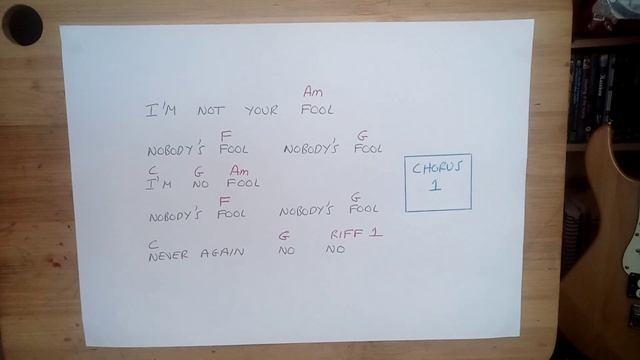 Am
I'M NOT YOUR FOOL
F G
NOBODY'S FOOL NOBODY'S FOOL
C G Am
I'M NO FOOL
F G
NOBODY'S FOOL NOBODY'S FOOL
C G RIFF 1
NEVER AGAIN NO NO
CHORUS
1